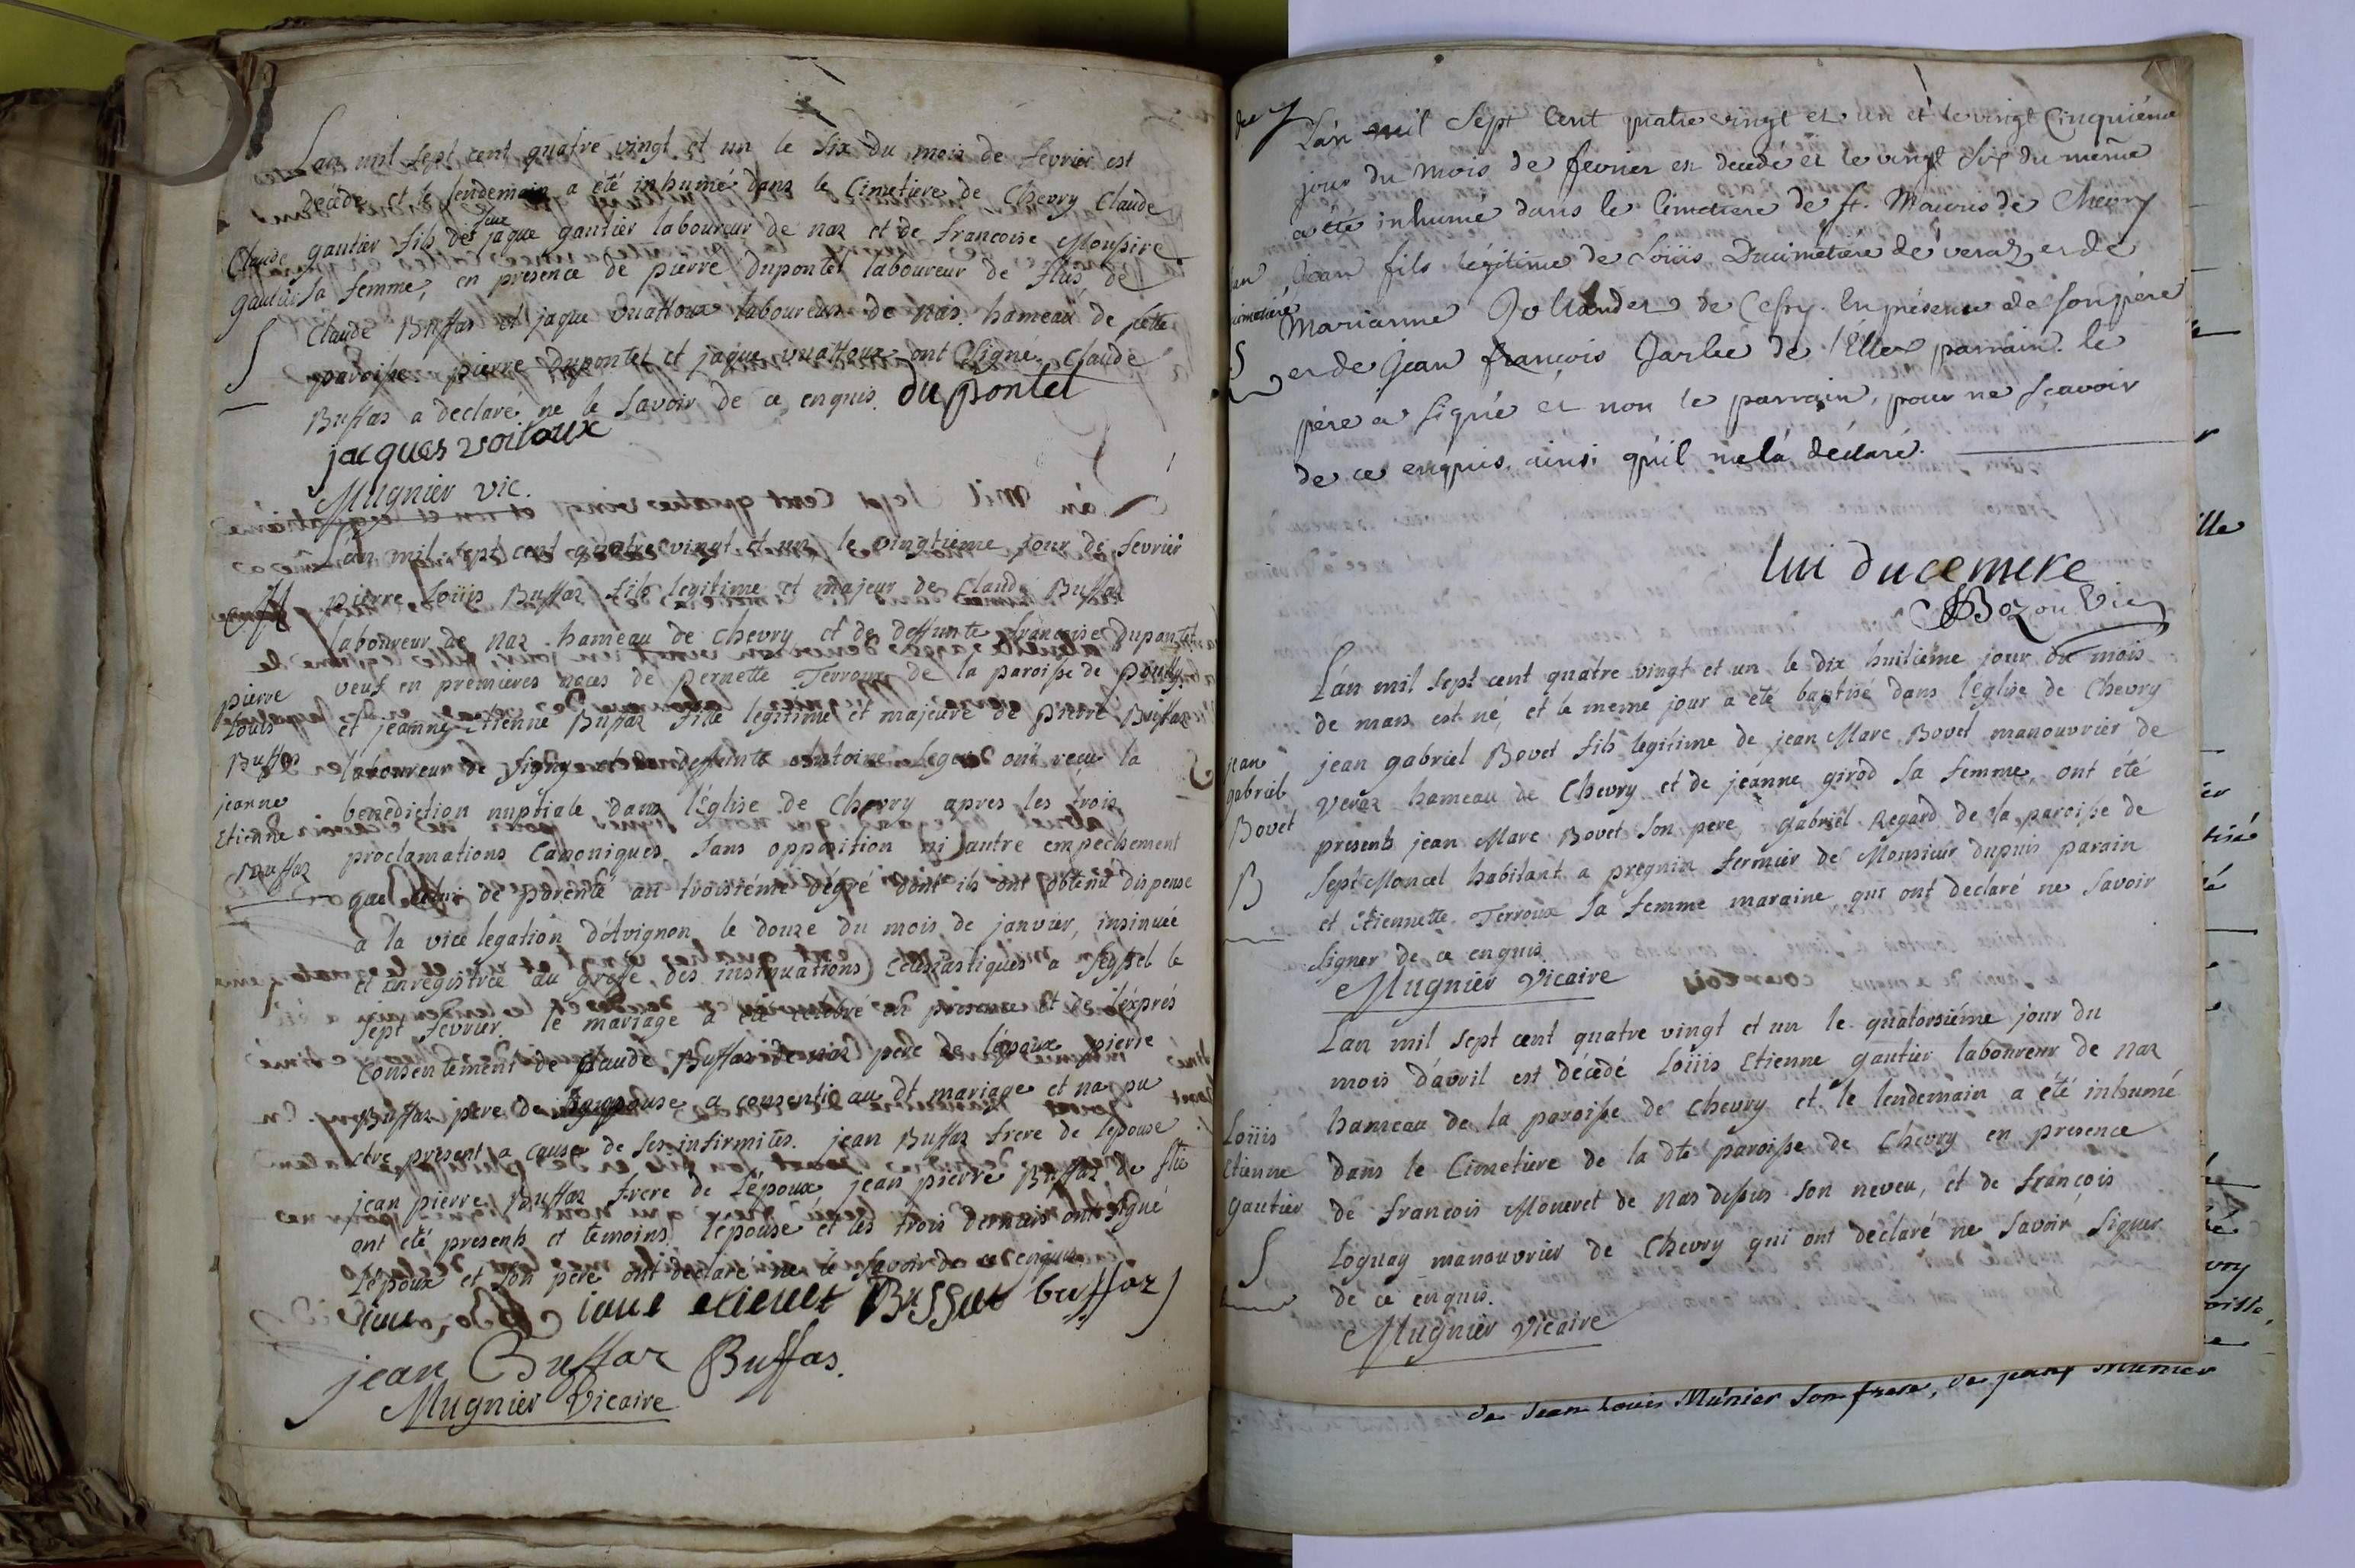 Lan mil sept cent quatre vingt et un le six du mois de fevrier est
décédé et le lendemain a été inhumé dans le Cimetiere de Chevry Claude
gautier fils de feux jaque gautier laboureur de naz et de francoise Monsire
sa femme, en presence de pierre dupontet laboureur de flis, de
Claude Buffaz et jaque vuattoux laboureurs de nas hameau de cette
paroisse pierre dupontet et jaque vuattoux ont signé. Claude
Buffas a declaré ne le savoir de ce enquis. du pontet
jacques voitoux
Mugnier vic.
Claude
gautier
S
L'an mil sept cent quatre vingt et un, le vingtieme jour de fevrier
pierre Loüis Buffaz fils legitime et majeur de Claude Buffaz
laboureur de naz hameau de chevry et de deffunte françoise Dupontet
veuf en premieres noces de pernette Terroux de la paroisse de pouilly
et jeanne Etienne Buffaz fille legitime et majeure de pierre Buffaz
laboureur de signy et de deffunte antoine Legai ont reçu la
benediction nuptiale dans l'Eglise de Chevry apres les trois
proclamations Canoniques, sans opposition ni autre empechement
que celui de parenté au troisiéme dégré dont ils ont obtenu dispense
a la vice legation d'Avignon le douze du mois de janvier, insinuée
et enregistrée au greffe, des insinuations Eclesiastiques a Seyssel le
sept fevrier, le mariage a été célébré en presence et de l'éxprés
Consentement de Claude Buffaz de naz pere de l'époux pierre
Buffaz pere de l'epouse a consenti au dt mariage et na pu
etre present a cause de ses infirmites. jean Buffaz frere de lepouse
jean pierre Buffaz frere de l'époux jean pierre Buffaz de flie
ont eté presents et temoins, lepouse et les trois derniers ont signé
l'époux et son pere ont declaré ne le savoir de ce enquis
Buffaz
jean Buffaz Buffas.
Mugnier Vicaire
pierre
Louis
Buffas
jeanne
Etienne
Buffaz
L'an mil sept cent quatre vingt et un et le vingt Cinquiéme
jour du mois de fevrier est decedé et le vingt six du même
a été inhumé dans le Cimetiere de st. Mauris de Chevry
Jean fils légitime de Loüis Ducimetiére de veraz et de
Marianne Jollander de Cessy. En présence de son père
et de Jean françois Jarlié de l'Ellex parrain. le
père a signé et non le parrain, pour ne scavoir
de ce enquis ainsi qu'il me l'a déclaré.
lui ducemere
Bozon Vic
L'an mil sept cent quatre vingt et un le dix huitieme jour du mois
de mars est né, et le meme jour a été baptisé dans l'Eglise de Chevry
jean gabriel Bovet fils legitime de jean Marc Bovet manouvrier de
veraz hameau de Chevry et de jeanne girod sa femme, ont été
presents jean Marc Bovet son pere, gabriel Regard de la paroisse de
Sept Moncel habitant a pregnin fermier de Monsieur dupuis parain
et Etiennette Terroux sa femme maraine qui ont declaré ne savoir
signer de ce enquis.
Mugnier Vicaire
jean
gabriel
Bovet
B
Lan mil sept cent quatre vingt et un le quatorsiéme jour du
mois d'avril est décédé Loüis Etienne gautier laboureur de naz
hameau de la paroisse de Chevry et le lendemain a été inhumé
dans le Cimetiere de la dte paroisse de Chevry en presence
de francois Moueret de nas dessus son neveu, et de françois
Loguay manouvrier de Chevry qui ont declaré ne savoir signer
de ce enquis.
Mugnier Vicaire
Loüis
Etienne
Gautier
S
de Jean Louis Munier son frere, de jean Munier